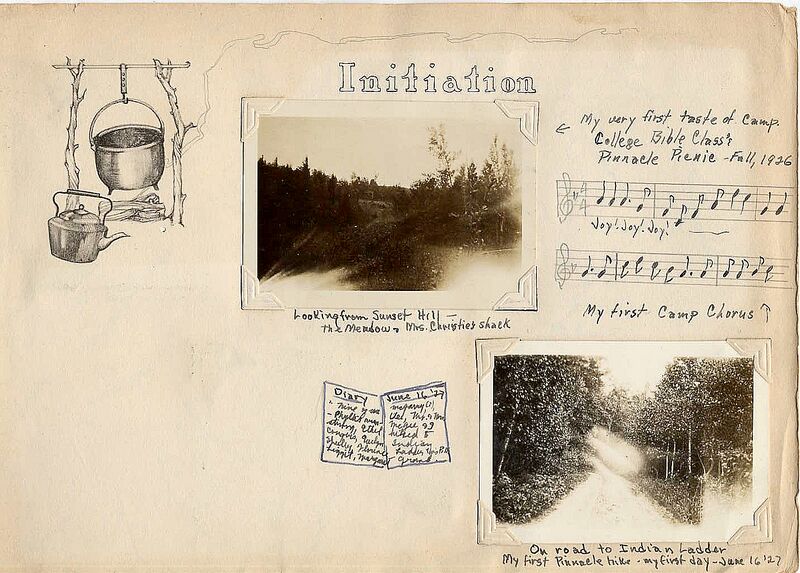 Initiation
My very first taste of Camp.
College Bible Class's
Pinnacle Picnic - Fall, 1926
Joy! Joy! Joy!
My first Camp Chorus ↑
Looking from Sunset Hill -
the Meadow & Mrs. Christie's shack
Diary
- Nine of us
- Phyllis
Ethel
Florence
June 16 '27
hiked to
Indian
Ladder
On road to Indian Ladder
My first Pinnacle hike - my first day - June 16 '27